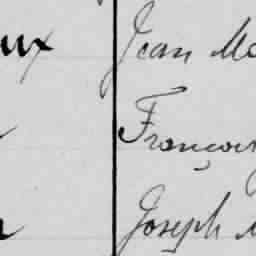 ux Jean
François
Joseph